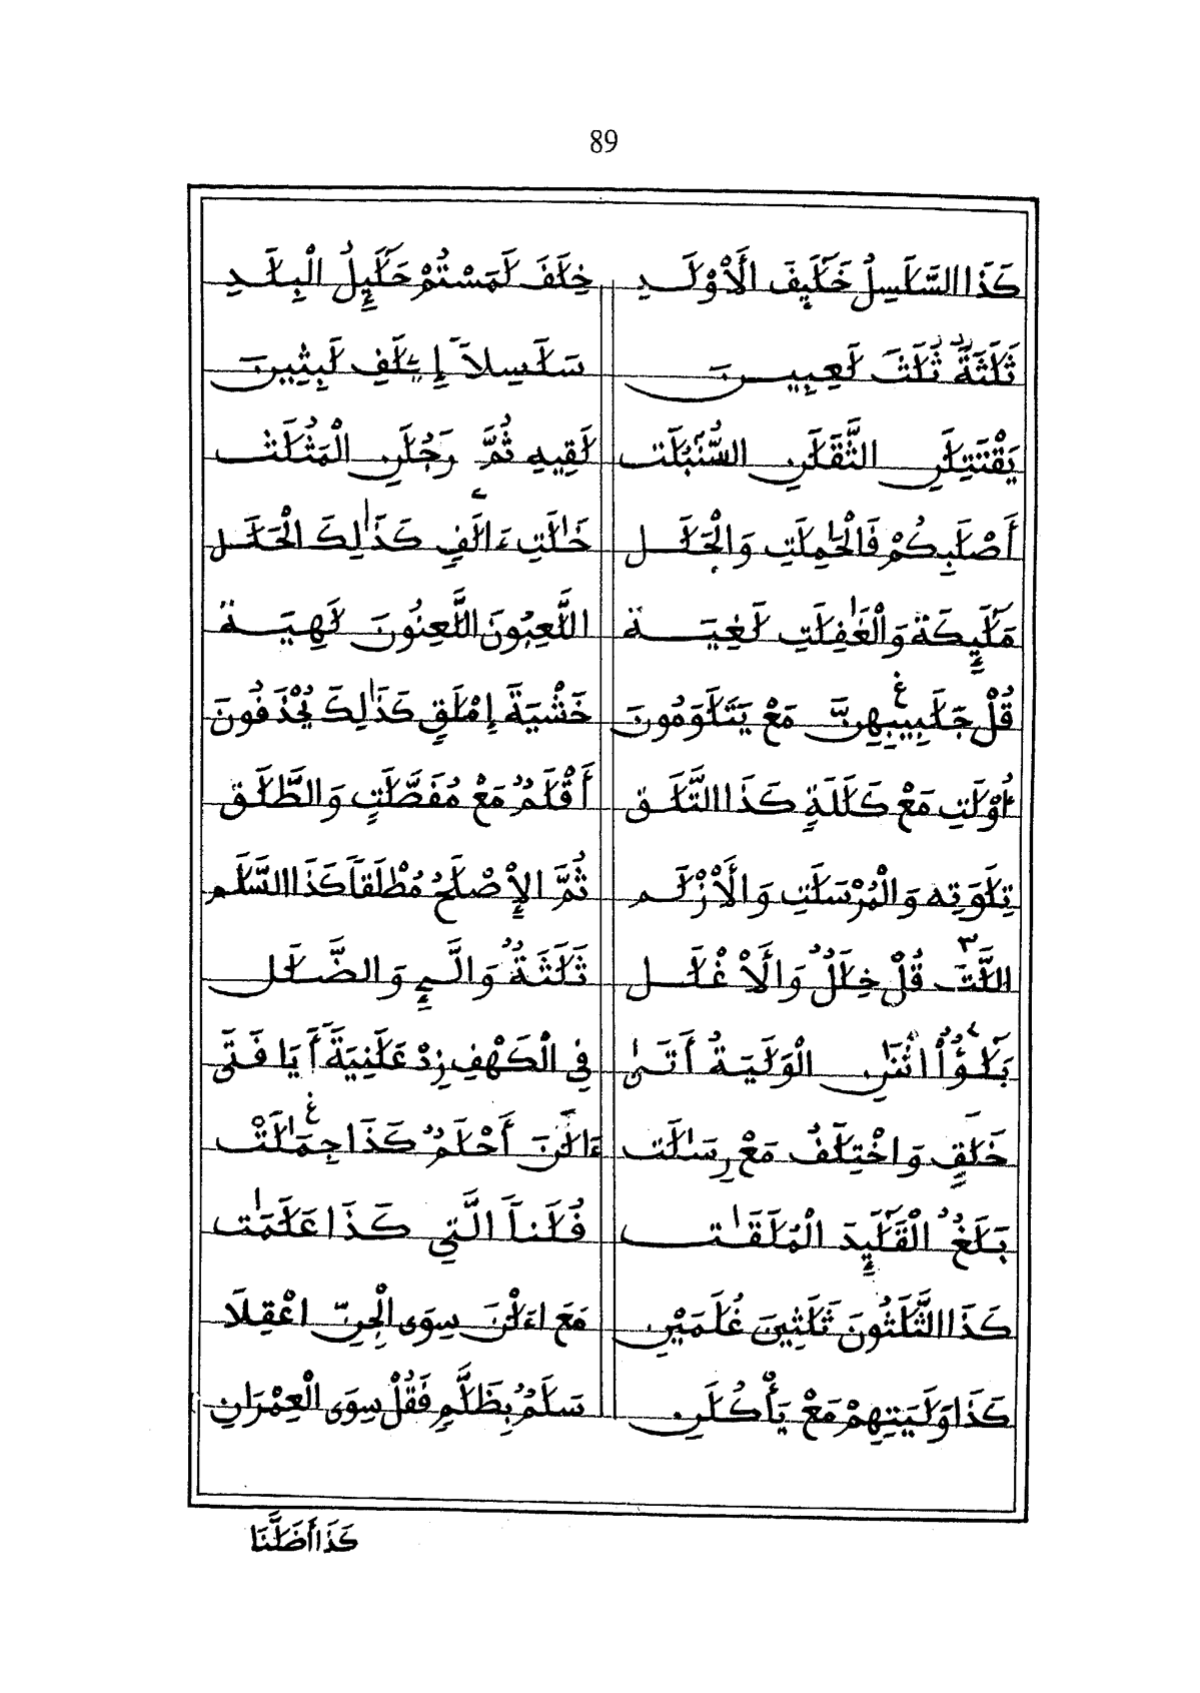 89
كَذَا السَّلَسِلُ خَلَٰٓئِفَ الَاوْلَدِ خِلَفَ لَمَسْتُمْ حَلَٰٓئِلُ الْبِلَدِ
ثَلَثَةٌ ثُلَثَ لَعِبِينَ سَلَسِلاَ إِۦلَفِ لَبِثِينَ
يَقْتَتِلَنِ الثَّقَلَنِ السُّنْبُلَت لَقِيهِ ثُمَّ رَجُلَنِ الْمَثُلَت
أَصْلَبِكُمْ فَالْحَٰمِلَتِ وَالْجَلَل خَٰلَتِ ءَالَفٍ كَذَٰلِكَ الْحَلَل
مَلَٰٓئِكَة وَالْغَٰفِلَتِ لَغِيَة اللَّعِبُونَ اللَّعِنُونَ لَهِيَة
قُلْ جَلَبِيبِهِنَّ مَعْ يَتَلَوَمُونَ خَشْيَةَ إِمْلَقٍ كَذَٰلِكَ يُحْذَفُونَ
أُوْلَتِ مَعْ كَلَلَةٍ كَذَا التَّلَق أَقْلَمٌ مَعْ مُفَصَّلَتٍ وَالطَّلَق
تِلَوَتِه وَالْمُرْسَلَتِ وَالَازْلَم ثُمَّ الإِصْلَحُ مُطْلَقاً كَذَا السَّلَم
اللَّتِ قُلْ خِلَلٌ وَالَاغْلَل ثَلَثَةٌ وَالَّٰٓـِٔ وَالضَّلَل
بَلَٰٓؤٌاْ اثْنَٰنِ الْوَلَيَةُ أَتَىٰ فِي الْكَهْفِ زِدْ عَلَنِيَةً أَيَا فَتَى
خَلَقٍ وَاخْتِلَفُ مَعْ رِسَٰلَت ءَالَٰنَ أَحْلَمٌ كَذَا جِمَٰلَتْ
بَلَغٌ الْقَلَٰٓئِدَ الْمُلَقَٰت فُلَناً الَّتِي كَذَا عَلَمَٰت
كَذَا الثَّلَثُونَ ثَلَثِينَ غُلَمَيْنِ مَعَ اءَلْنَ سِوَى الْجِنِّ اعْقِلَا
كَذَا وَلَيَتِهِمْ مَعْ يَأْكُلَنِ سَلَمٌ بِظَلَّمٍ فَقُلْ سِوَى الْعِمْرَانِ
كَذَا أَضَلَّنَا